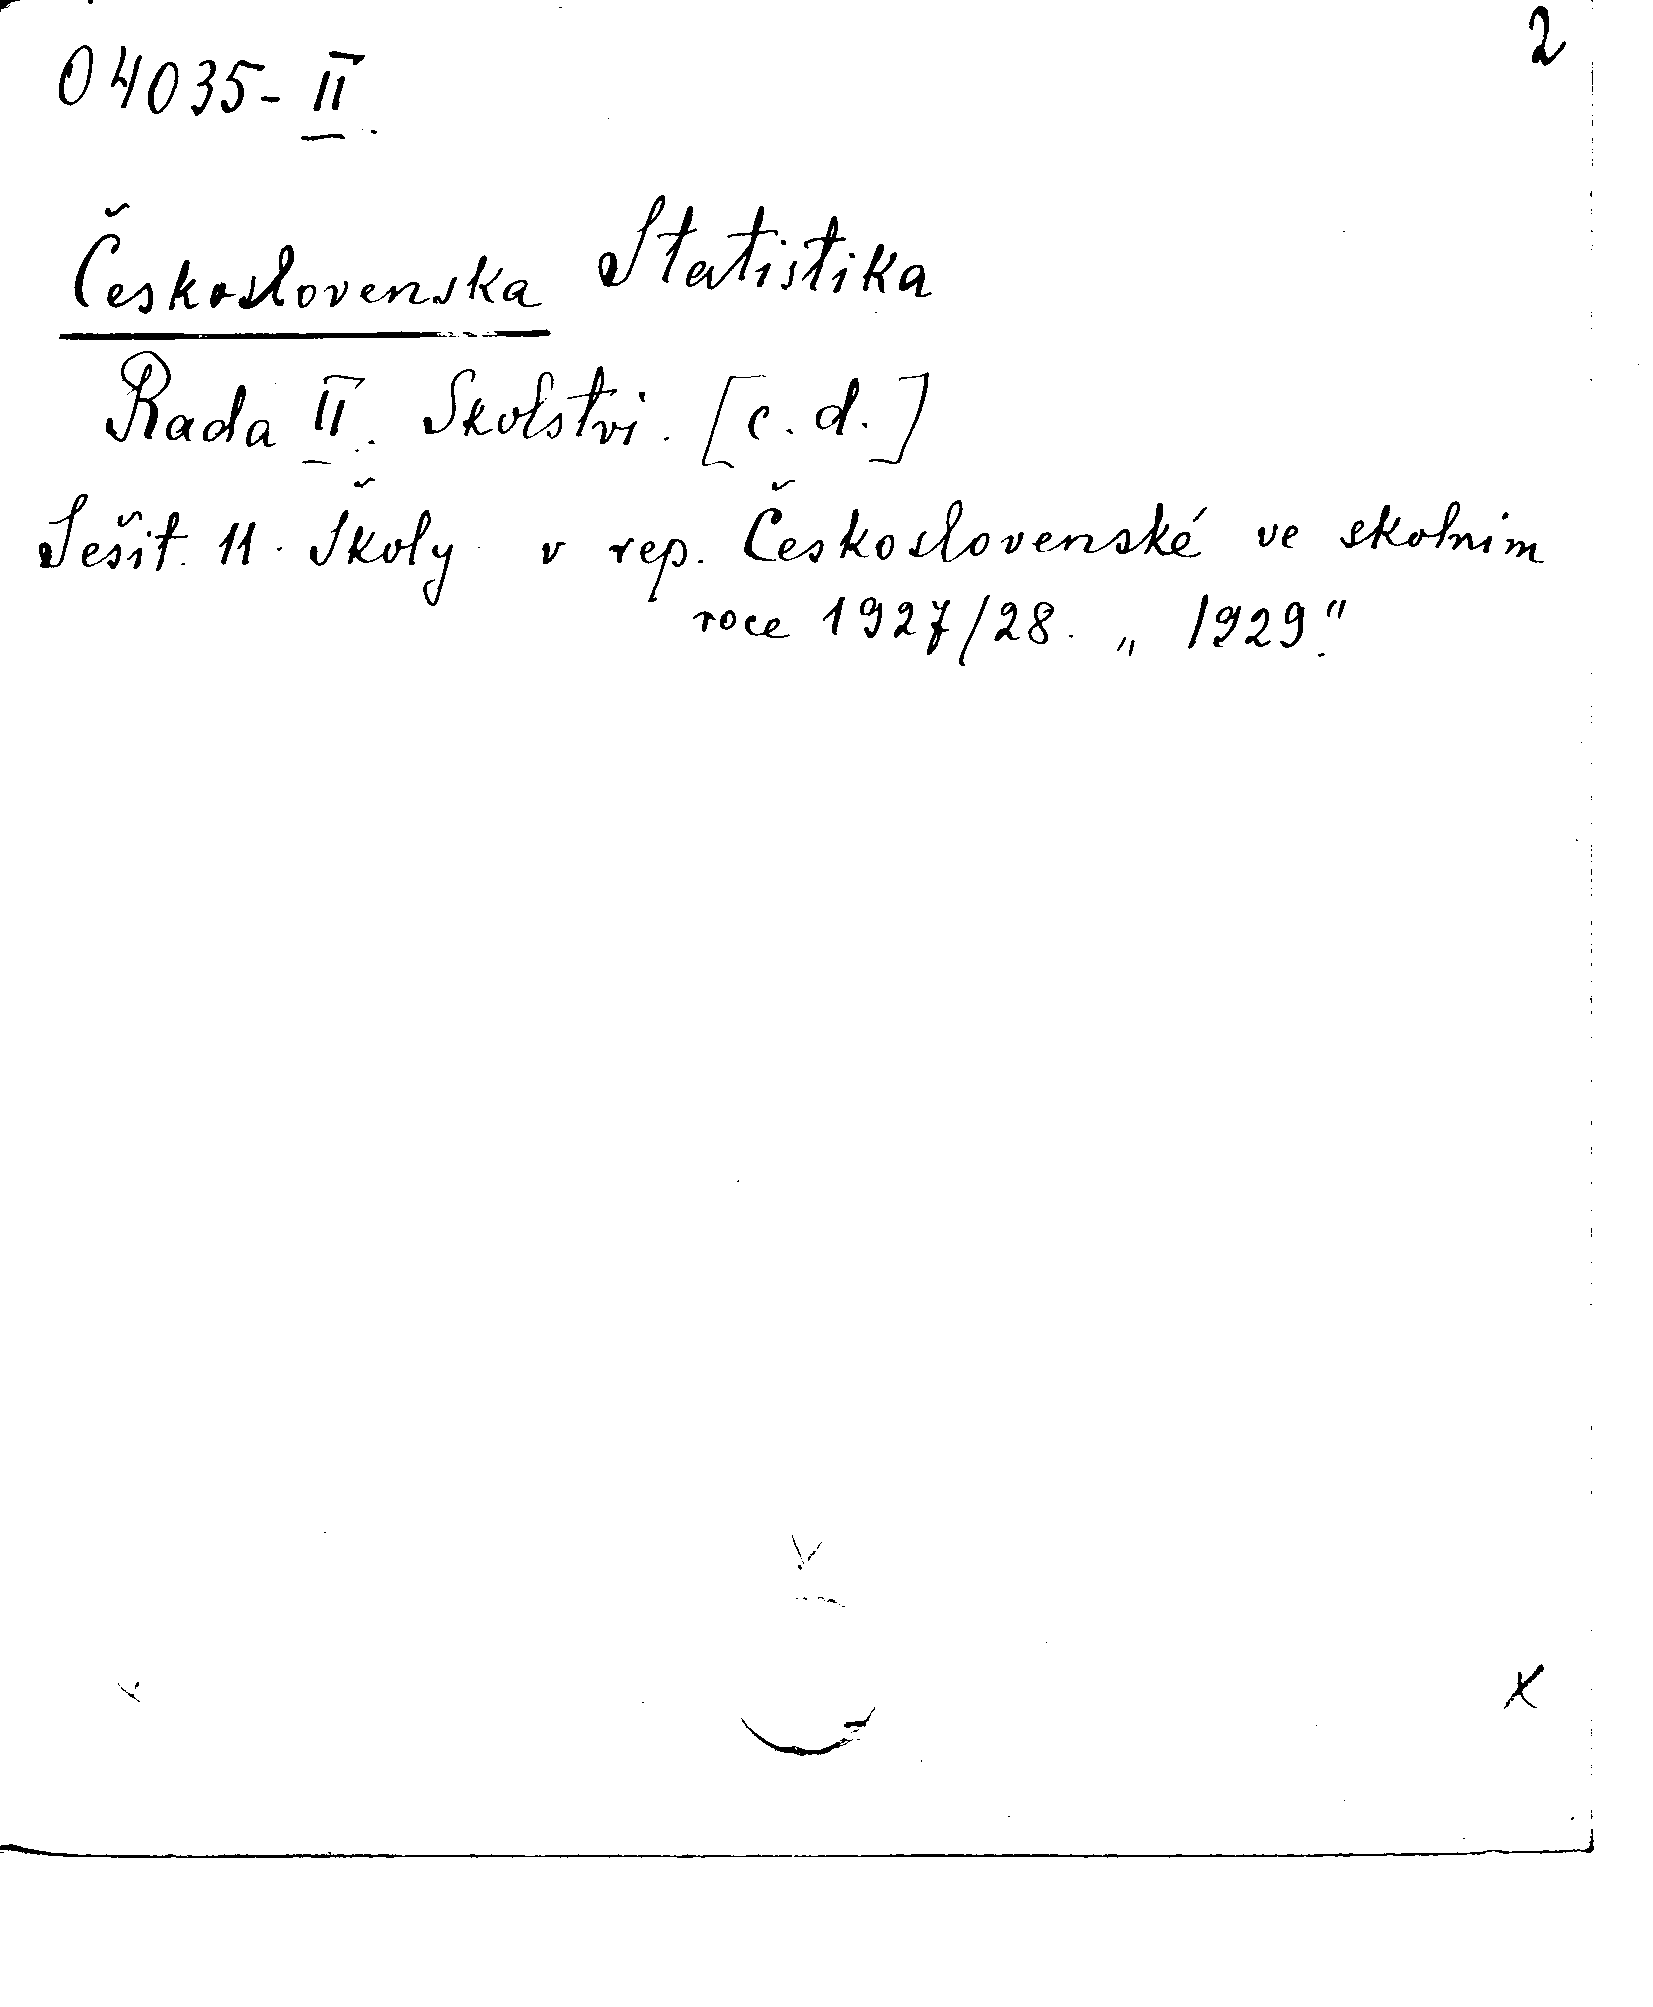 2
04035-II.
Československa Statistika
Rada II. Skolstvi. [c.d.]
Sešit. 11. Školy v rep. Československé ve skolnim
roce 1927/28. „1929."
x